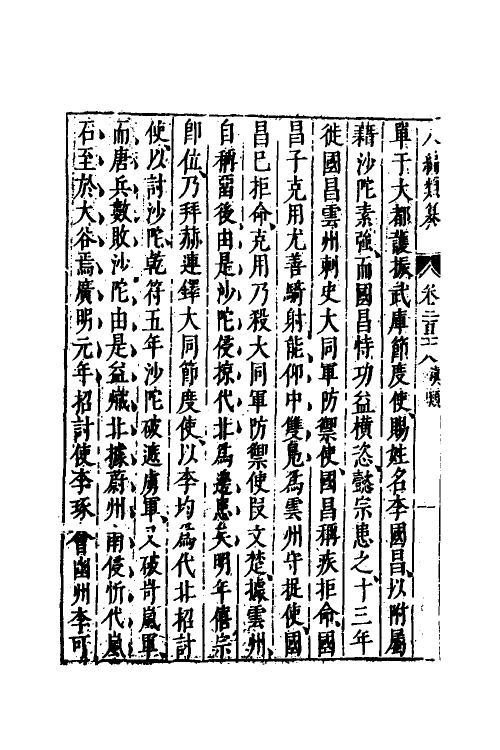 八編類纂　卷二百二八　演類　一
單于大都護振武庫節度使賜姓名李國昌以附屬
藉沙陀素強而國昌恃功益橫恣懿宗患之十三年
徙國昌雲州刺史大同軍防禦使國昌稱疾拒命國
昌子克用尤善騎射能仰中雙鳬爲雲州守捉使國
昌已拒命克用乃殺大同軍防禦使段文楚據雲州
自稱畱後由是沙陀侵掠代北爲邊患矣明年僖宗
卽位乃拜赫連鐸大同節度使以李均爲代北招討
使以討沙陀乾符五年沙陀破遮虜軍又破岢嵐軍
而唐兵數敗沙陀由是益熾北據蔚州南侵忻代嵐
石至於大谷焉廣明元年招討使李琢會幽州李可